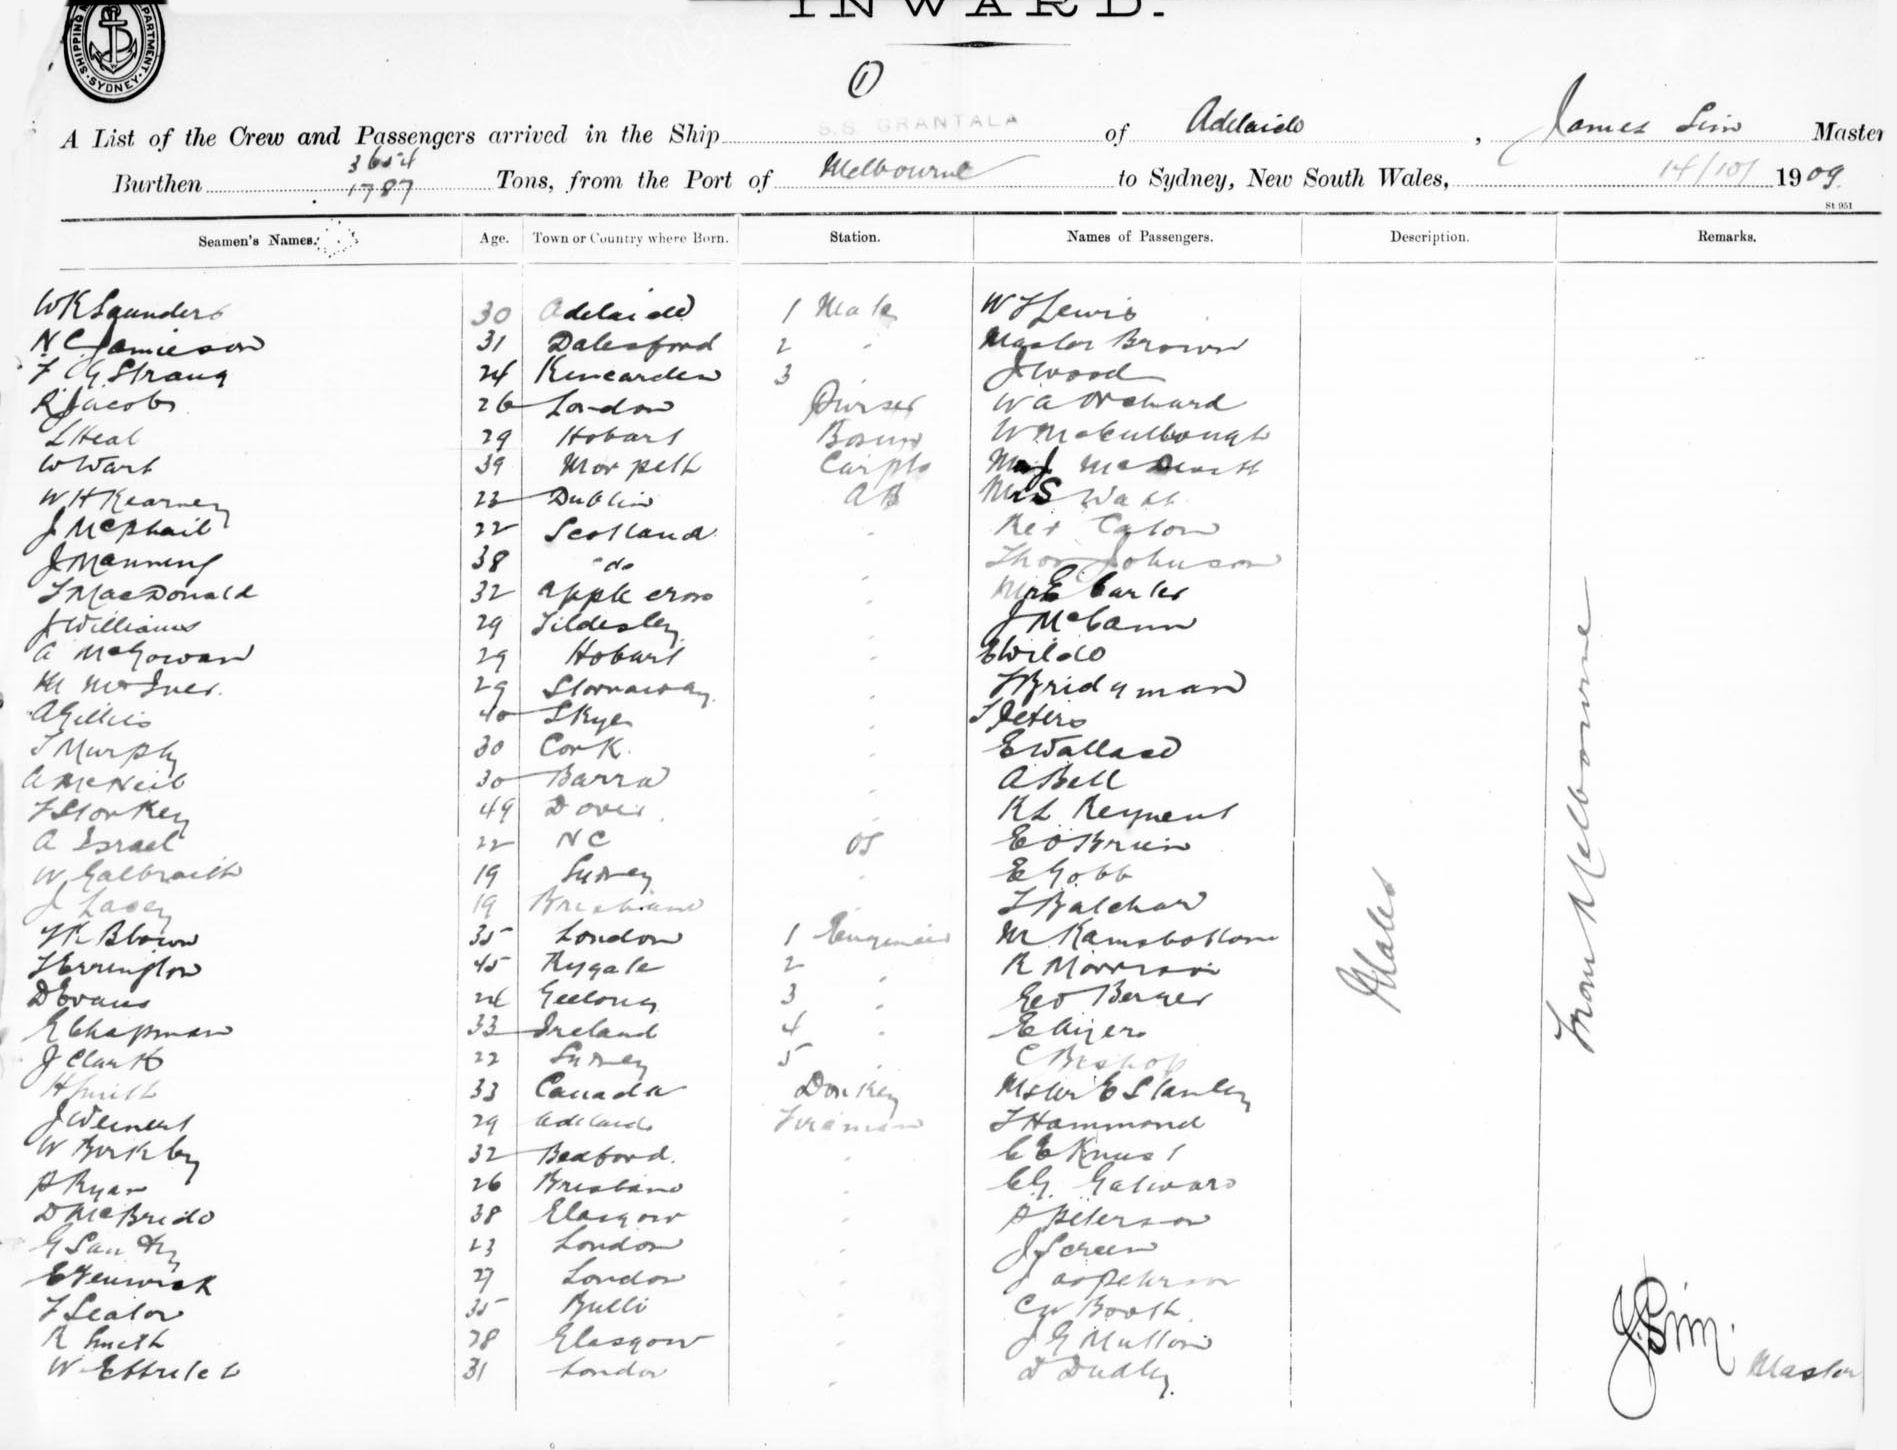 INWARD.
SHIPPING DEPARTMENT SYDNEY
1
A List of the Crew and Passengers arrived in the Ship S.S. GRANTALA of Adelaide, James Sim Master
3654
Burthen 1787 Tons, from the Port of Melbourne to Sydney, New South Wales, 14/10/ 1909.
St 951
Seamen's Names. Age. Town or Country where Born. Station. Names of Passengers. Description. Remarks.
W K Saunders 30 Adelaide 1 Mate W J Lewis
N C Jamieson 31 Dalesford 2 " Master Brown
F G Strang 24 Kincarden 3 J Wood
R Jacobs 26 London W A Orchard
L Heal 29 Hobart Bosun W McCullough
W Wark 39 Morpeth Carptr
W H Kearney 23 Dublin AB Mrs Watt
J McPhail 22 Scotland " Rev Caton
J Manning 38 "do" Thos Johnson
J MacDonald 32 Applecross " E Carter
J Williams 29 Tildesley " J McCann
A McGowan 29 Hobart " E Wilde
M McIver. 29 Stornaway " F Bridgman
A Gillies 40 Skye " J Peters
J Murphy 30 Cork " E Wallace
A McNeil 30 Barra " A Bell
F Storkey 49 Dover " R L Reynent
A Israel 22 N C OS E O'Brien
W Galbraith 19 Sydney " E Gobb
J Lacey 19 Brisbane " F Balchar
F K Brown 35 London 1 Engineer M Ramsbottom
J Errington 45 Rygate 2 " R Morrison
D Evans 24 Geelong 3 " Geo Berger
E Chapman 33 Ireland 4 " E Ayers
J Clark 22 Sydney 5 " C Bishop
H Smith 33 Canada Donkey Mster E Stanley
J Weinert 29 Adelaide Fireman J Hammond
W Birkby 32 Bedford. " C E Knust
P Ryan 26 Brisbane " C G Galwaro
D McBride 38 Glasgow " P Peterson
G Sandry 23 London " J Green
E Fenwick 27 London " J Peterson
F Seator 35 Bulli " C W Booth
R Smith 28 Glasgow " J G Mutton
W Ebbrileb 31 London " D Dudley.
Males
From Melbourne
J. Sim. Master